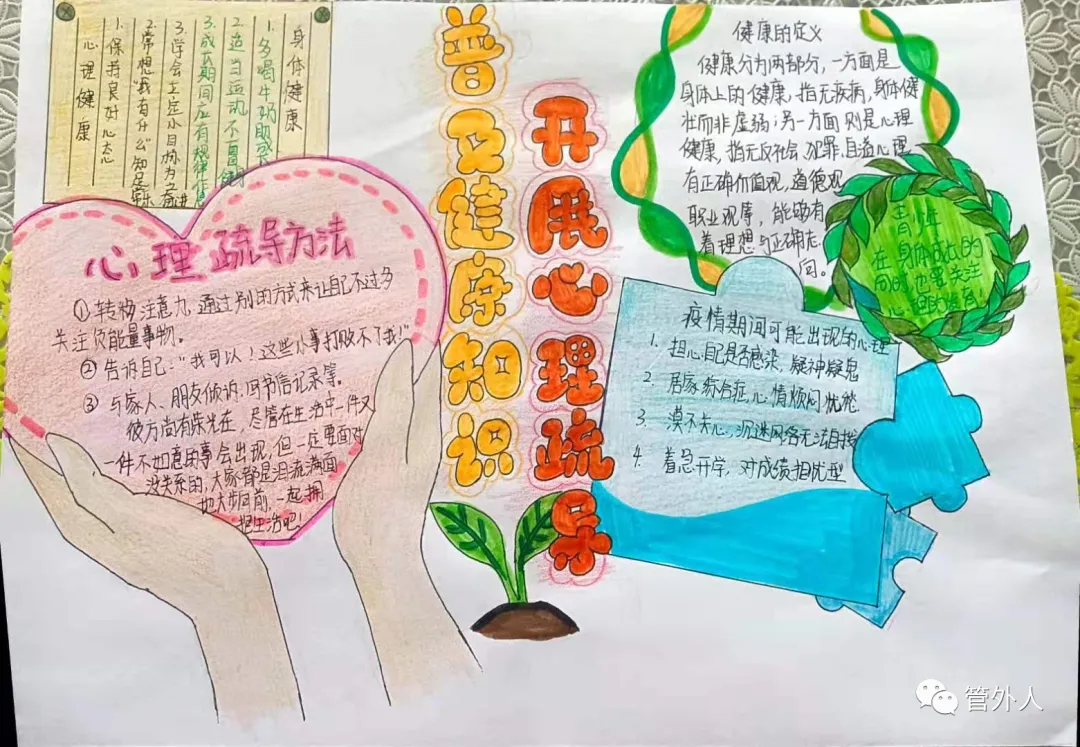 普及健康知识
开展心理疏导
身体健康
1.多喝牛奶助成
2.适当运动,不冒
3.成长期间应有规律作
心理健康
1.保持良好心态
2.常想"我有什么"知足
3.学会立定小目标为之奋进
心理疏导方法
①转移注意力,通过别的方式来让自己不过多
关注负能量事物。
②告诉自己:"我可以!这些小事打败不了我!"
③与家人、朋友倾诉,写书信记录等。
彼方尚有荣光在,尽管在生活中一件又
一件不如意的事会出现,但一定要面对
没关系的,大家都是泪流满面
把大步向前,一起拥
抱生活吧!
健康的定义
健康分为两部分,一方面是
身体上的健康,指无疾病,身体健
壮而非虚弱;另一方面则是心理
健康,指无反社会、犯罪、自盗心理
有正确价值观,道德观
职业观等,能够有
着理想与正确志
向。
青少年
在身体成长的
同时也要关注
疫情期间可能出现的心理
1.担心自己是否感染,疑神疑鬼
2.居家综合症,心情烦闷忧愁
3.漠不关心,沉迷网络无法自拔
4.着急开学,对成绩担忧型
管外人